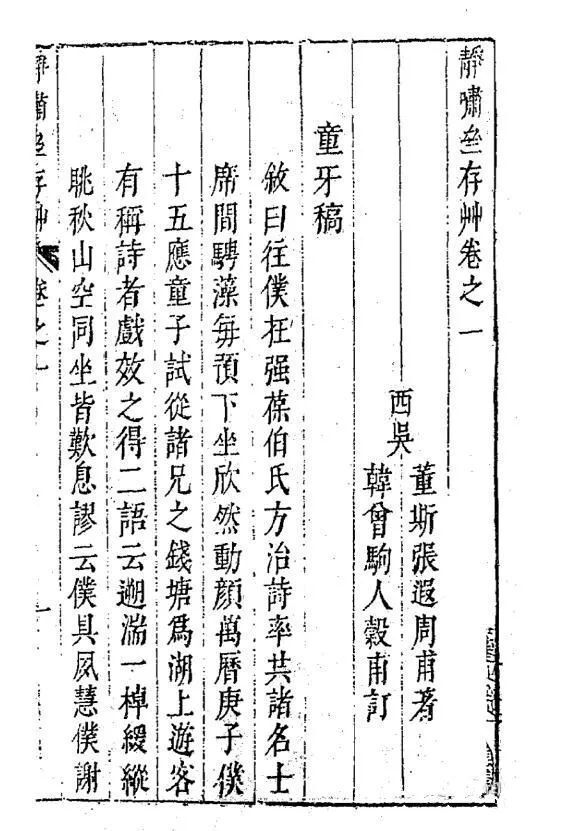 靜嘯𡉏存艸卷之一
西吳
董斯張遐周甫著
韓曾駒人穀甫訂
童牙稿
敘曰往僕在强葆伯氏方治詩率共諸名士
席間騁藻每預下坐欣然動顏萬曆庚子僕
十五應童子試從諸兄之錢塘爲湖上遊客
有稱詩者戲效之得二語云遡湍一棹緩縱
眺秋山空同坐皆歎息謬云僕具夙慧僕謝
靜嘯𡉏存艸
卷之一
一